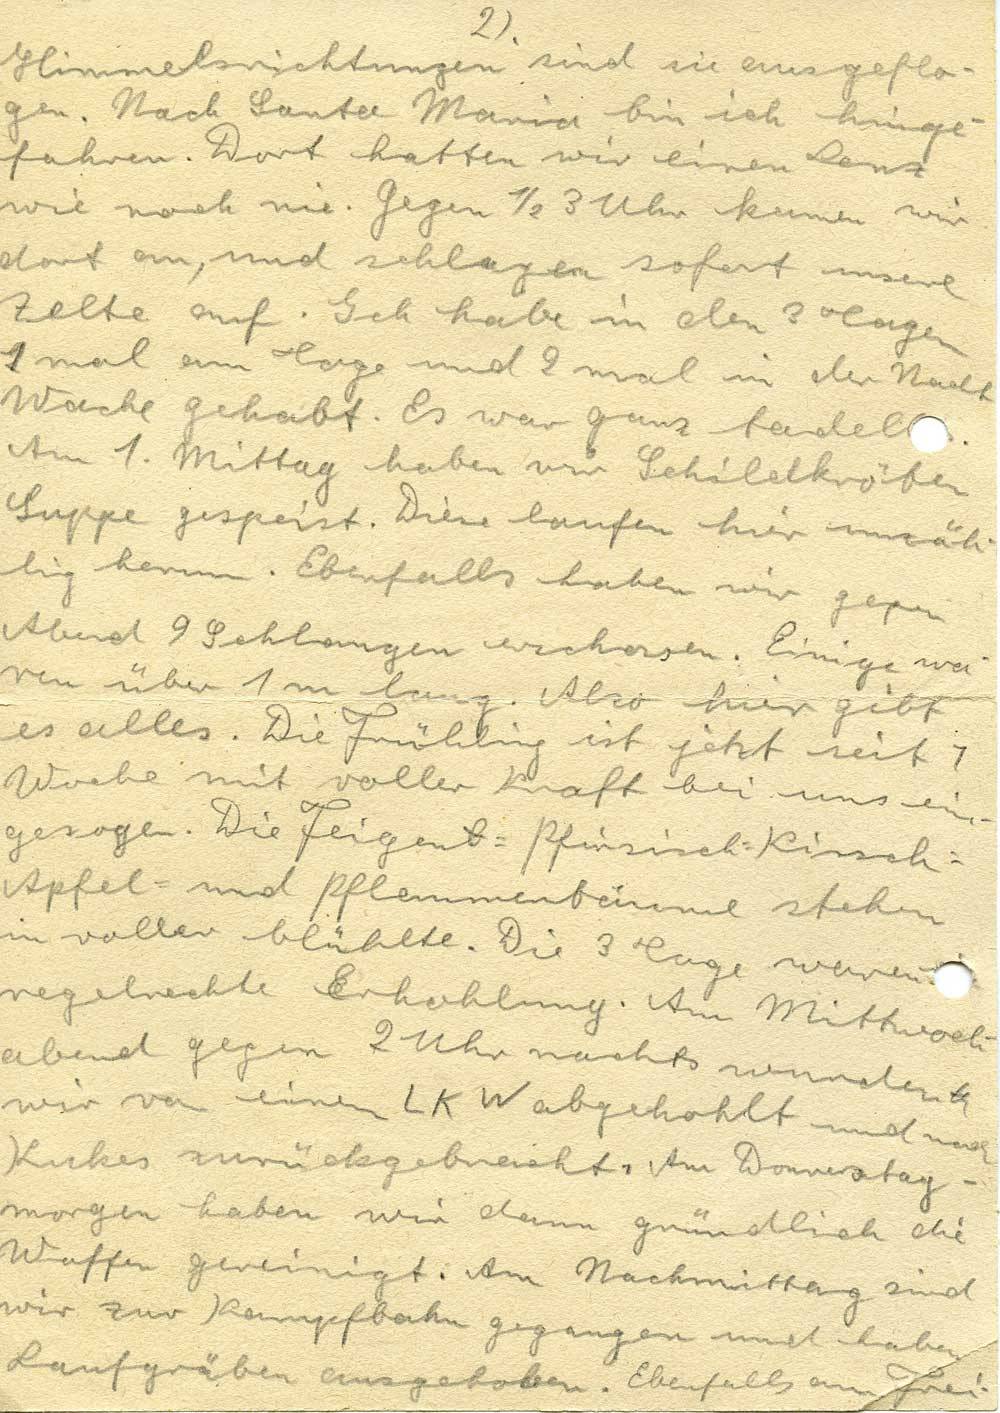 2).
Himmelsrichtungen sind sie ausgeflo-
gen. Nach Santa Maria bin ich hinge-
fahren. Dort hatten wir einen Lenz
wie noch nie. Gegen 1/2 3 Uhr kamen wir
dort an, und schlagen sofort unsere
Zelte auf. Ich habe in den 3 Tagen
1 mal am Tage und 2 mal in der Nacht
Wache gehabt. Es war ganz tadell .
Am 1. Mittag haben wir Schildkröten
Suppe gespeist. Diese laufen hier unzäh-
lig herum. Ebenfalls haben wir gegen
Abend 9 Schlangen erschossen. Einige wa-
ren über 1 m lang. Also hier gibt
es alles. Die Frühling ist jetzt seit 1
Woche mit voller Kraft bei uns ein-
gezogen. Die Feigen= Pfirsisch= Kirsch=
Apfel= und Pflaumenbäume stehen
in voller blühte. Die 3 Tage waren
regelrechte Erhohlung. Am Mittwoch-
abend gegen 2 Uhr nachts wurden
wir von einen LKW abgehohlt und nach
Kukes zurückgebracht. Am Donnerstag-
morgen haben wir dann gründlich die
Waffen gereinigt. Am Nachmittag sind
wir zur Kampfbahn gegangen und haben
Laufgräben ausgehoben. Ebenfalls am Frei-